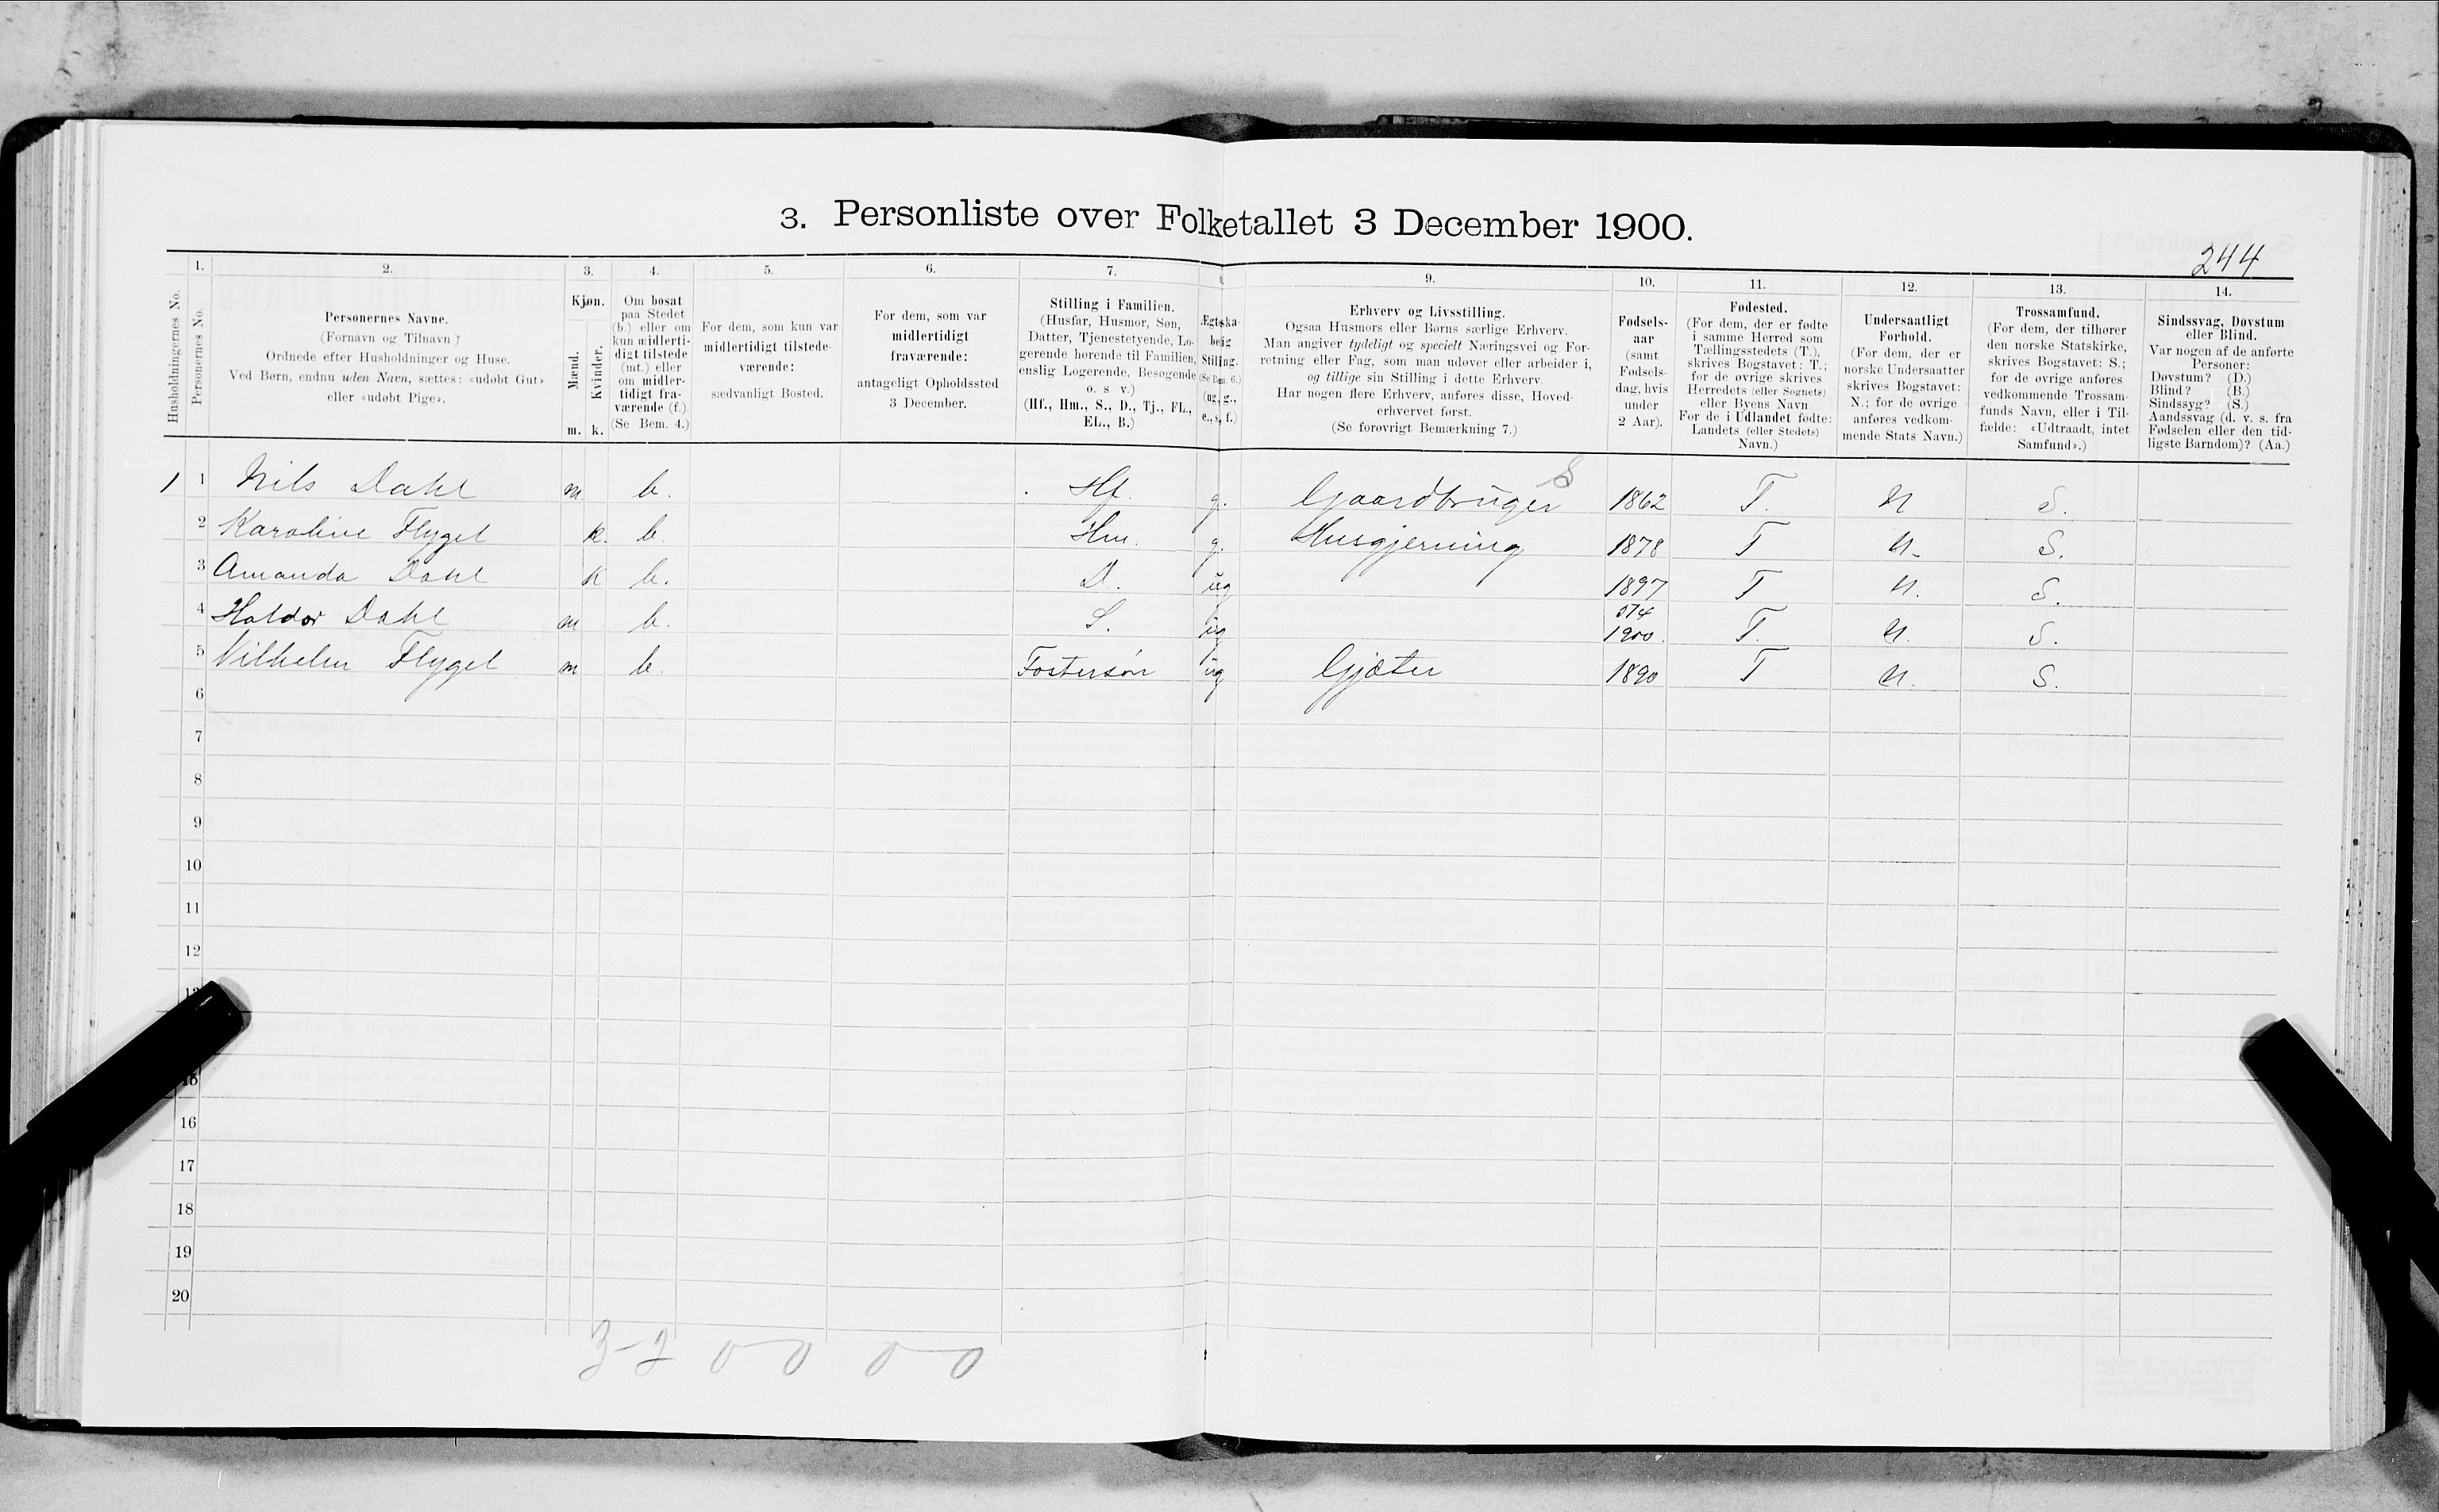 3. Personliste over Folketallet 3 December 1900.
244
1. 2. 3. 4. 5. 6. 7. 9. 10. 11. 12. 13. 14.
Husholdningernes No.
Personernes No.
Personernes Navne.
(Fornavn og Tilnavn)
Ordnede efter Husholdninger og Huse.
Ved Børn, endnu uden Navn, sættes: «udøbt Gut»
eller «udøbt Pige».
Kjøn.
Mænd.
Kvinder.
m. k.
Om bosat
paa Stedet
(b.) eller om
kun midlerti-
digt tilstede
(mt.) eller
om midler-
tidigt fra-
værende (f.).
(Se Bem. 4.)
For dem, som kun var
midlertidigt tilstede-
værende:
sædvanligt Bosted.
For dem, som var
midlertidigt
fraværende:
antageligt Opholdssted
3 December.
Stilling i Familien.
(Husfar, Husmor, Søn,
Datter, Tjenestetyende, Lo-
gerende hørende til Familien,
enslig Logerende, Besøgende
o. s v.)
(Hf., Hm., S., D., Tj., FL.,
EL., B.)
Ægteska-
belig
Stilling.
(Se Bem. 6.)
(ug., g.,
e., s., f.)
Erhverv og Livsstilling.
Ogsaa Husmors eller Børns særlige Erhverv.
Man angiver tydeligt og specielt Næringsvei og For-
retning eller Fag, som man udøver eller arbeider i,
og tillige sin Stilling i dette Erhverv.
Har nogen flere Erhverv, anføres disse, Hoved-
erhvervet først.
(Se forøvrigt Bemærkning 7.)
Fødsels-
aar
(samt
Fødsels-
dag, hvis
under
2 Aar).
Fødested.
(For dem, der er fødte
i samme Herred som
Tællingsstedets (T.),
skrives Bogstavet: T.;
for de øvrige skrives
Herredets (eller Sognets)
eller Byens Navn
For de i Udlandet fødte:
Landets (eller Stedets)
Navn.)
Undersaatligt
Forhold.
(For dem, der er
norske Undersaatter
skrives Bogstavet:
N.; for de øvrige
anføres vedkom-
mende Stats Navn.)
Trossamfund.
(For dem, der tilhører
den norske Statskirke,
skrives Bogstavet: S.;
for de øvrige anføres
vedkommende Trossam-
funds Navn, eller i Til-
fælde: «Udtraadt, intet
Samfund».)
Sindssvag, Døvstum
eller Blind.
Var nogen af de anførte
Personer:
Døvstum? (D.)
Blind? (B.)
Sindssyg? (S.)
Aandssvag (d. v. s. fra
Fødselen eller den tid-
ligste Barndom)? (Aa.)
1 1 Nils Dahl m b. Hf. g. Gaardbruger S 1862 T. N S.
2 Karoline Flygel k. b. Hm. g. Husgjerning 1878 T N. S.
3 Amanda Dahl k b. D. ug 1897 T N. S.
4 Haldor Dahl m b. S. ug 5/4 1900. T. N. S.
5 Vilhelm Flygel m b. Fostersøn ug Gjæter 1890 T N. S.
6
7
8
9
10
11
12
16
17
18
19
20
3-2 0 0 0 0